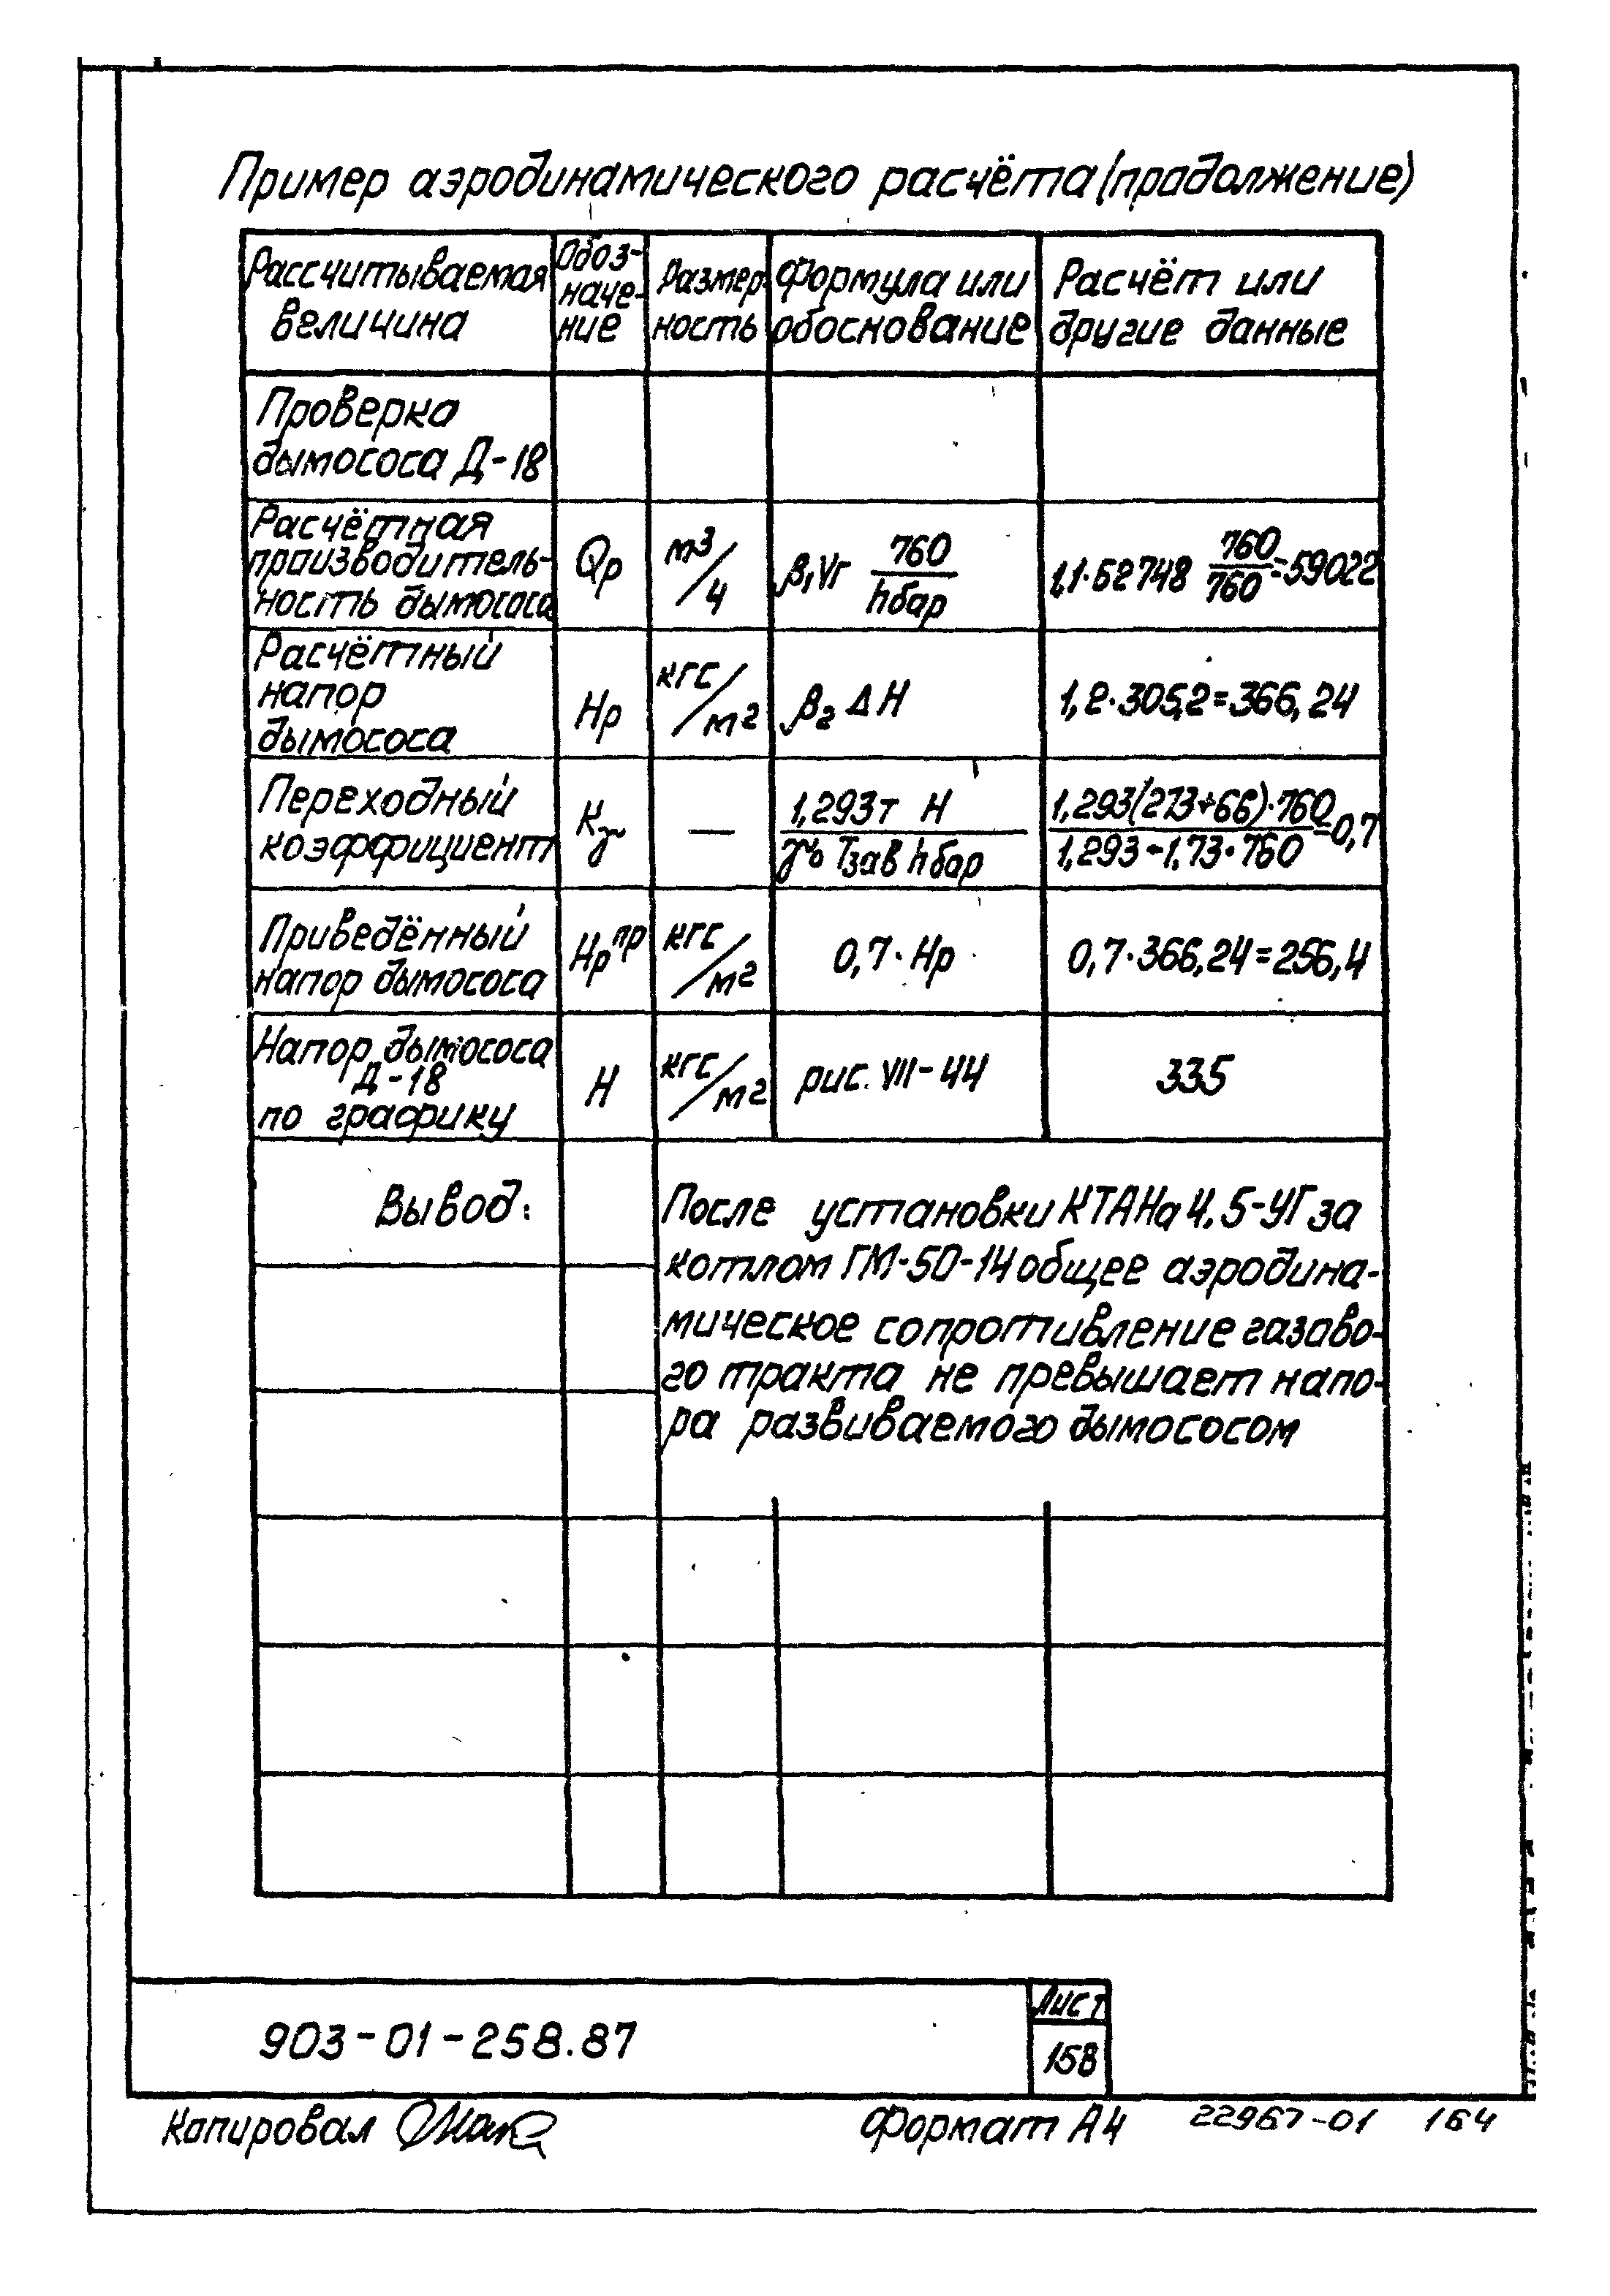 Пример аэродинамического расчёта (продолжение)
Рассчитываемая величина | Обоз-наче-ние | Размер-ность | Формула или обоснование | Расчёт или другие данные
Проверка
дымососа Д-18
Расчётная
производитель-
ность дымососа
Qр
м3/ч
β1 Vг 760/hбар
1,1·52748 760/760=59022
Расчётный
напор
дымососа
Нр
кгс/м2
β2 ΔН
1,2·305,2=366,24
Переходный
коэффициент
Кγ
—
1,293 т Н
Тзав hбар
1,293(273+66)·760
1,293-1,73·760
=0,7
Приведённый
напор дымососа
Нр пр
кгс/м2
0,7·Нр
0,7·366,24=256,4
Напор дымососа
Д-18
по графику
Н
кгс/м2
рис. VII-44
335
Вывод:
После установки КТАНа 4,5-УГ за
котлом ГМ-50-14 общее аэродина-
мическое сопротивление газово-
го тракта не превышает напо-
ра развиваемого дымососом
903-01-258.87
Лист
158
Копировал
Формат А4
22967-01 164